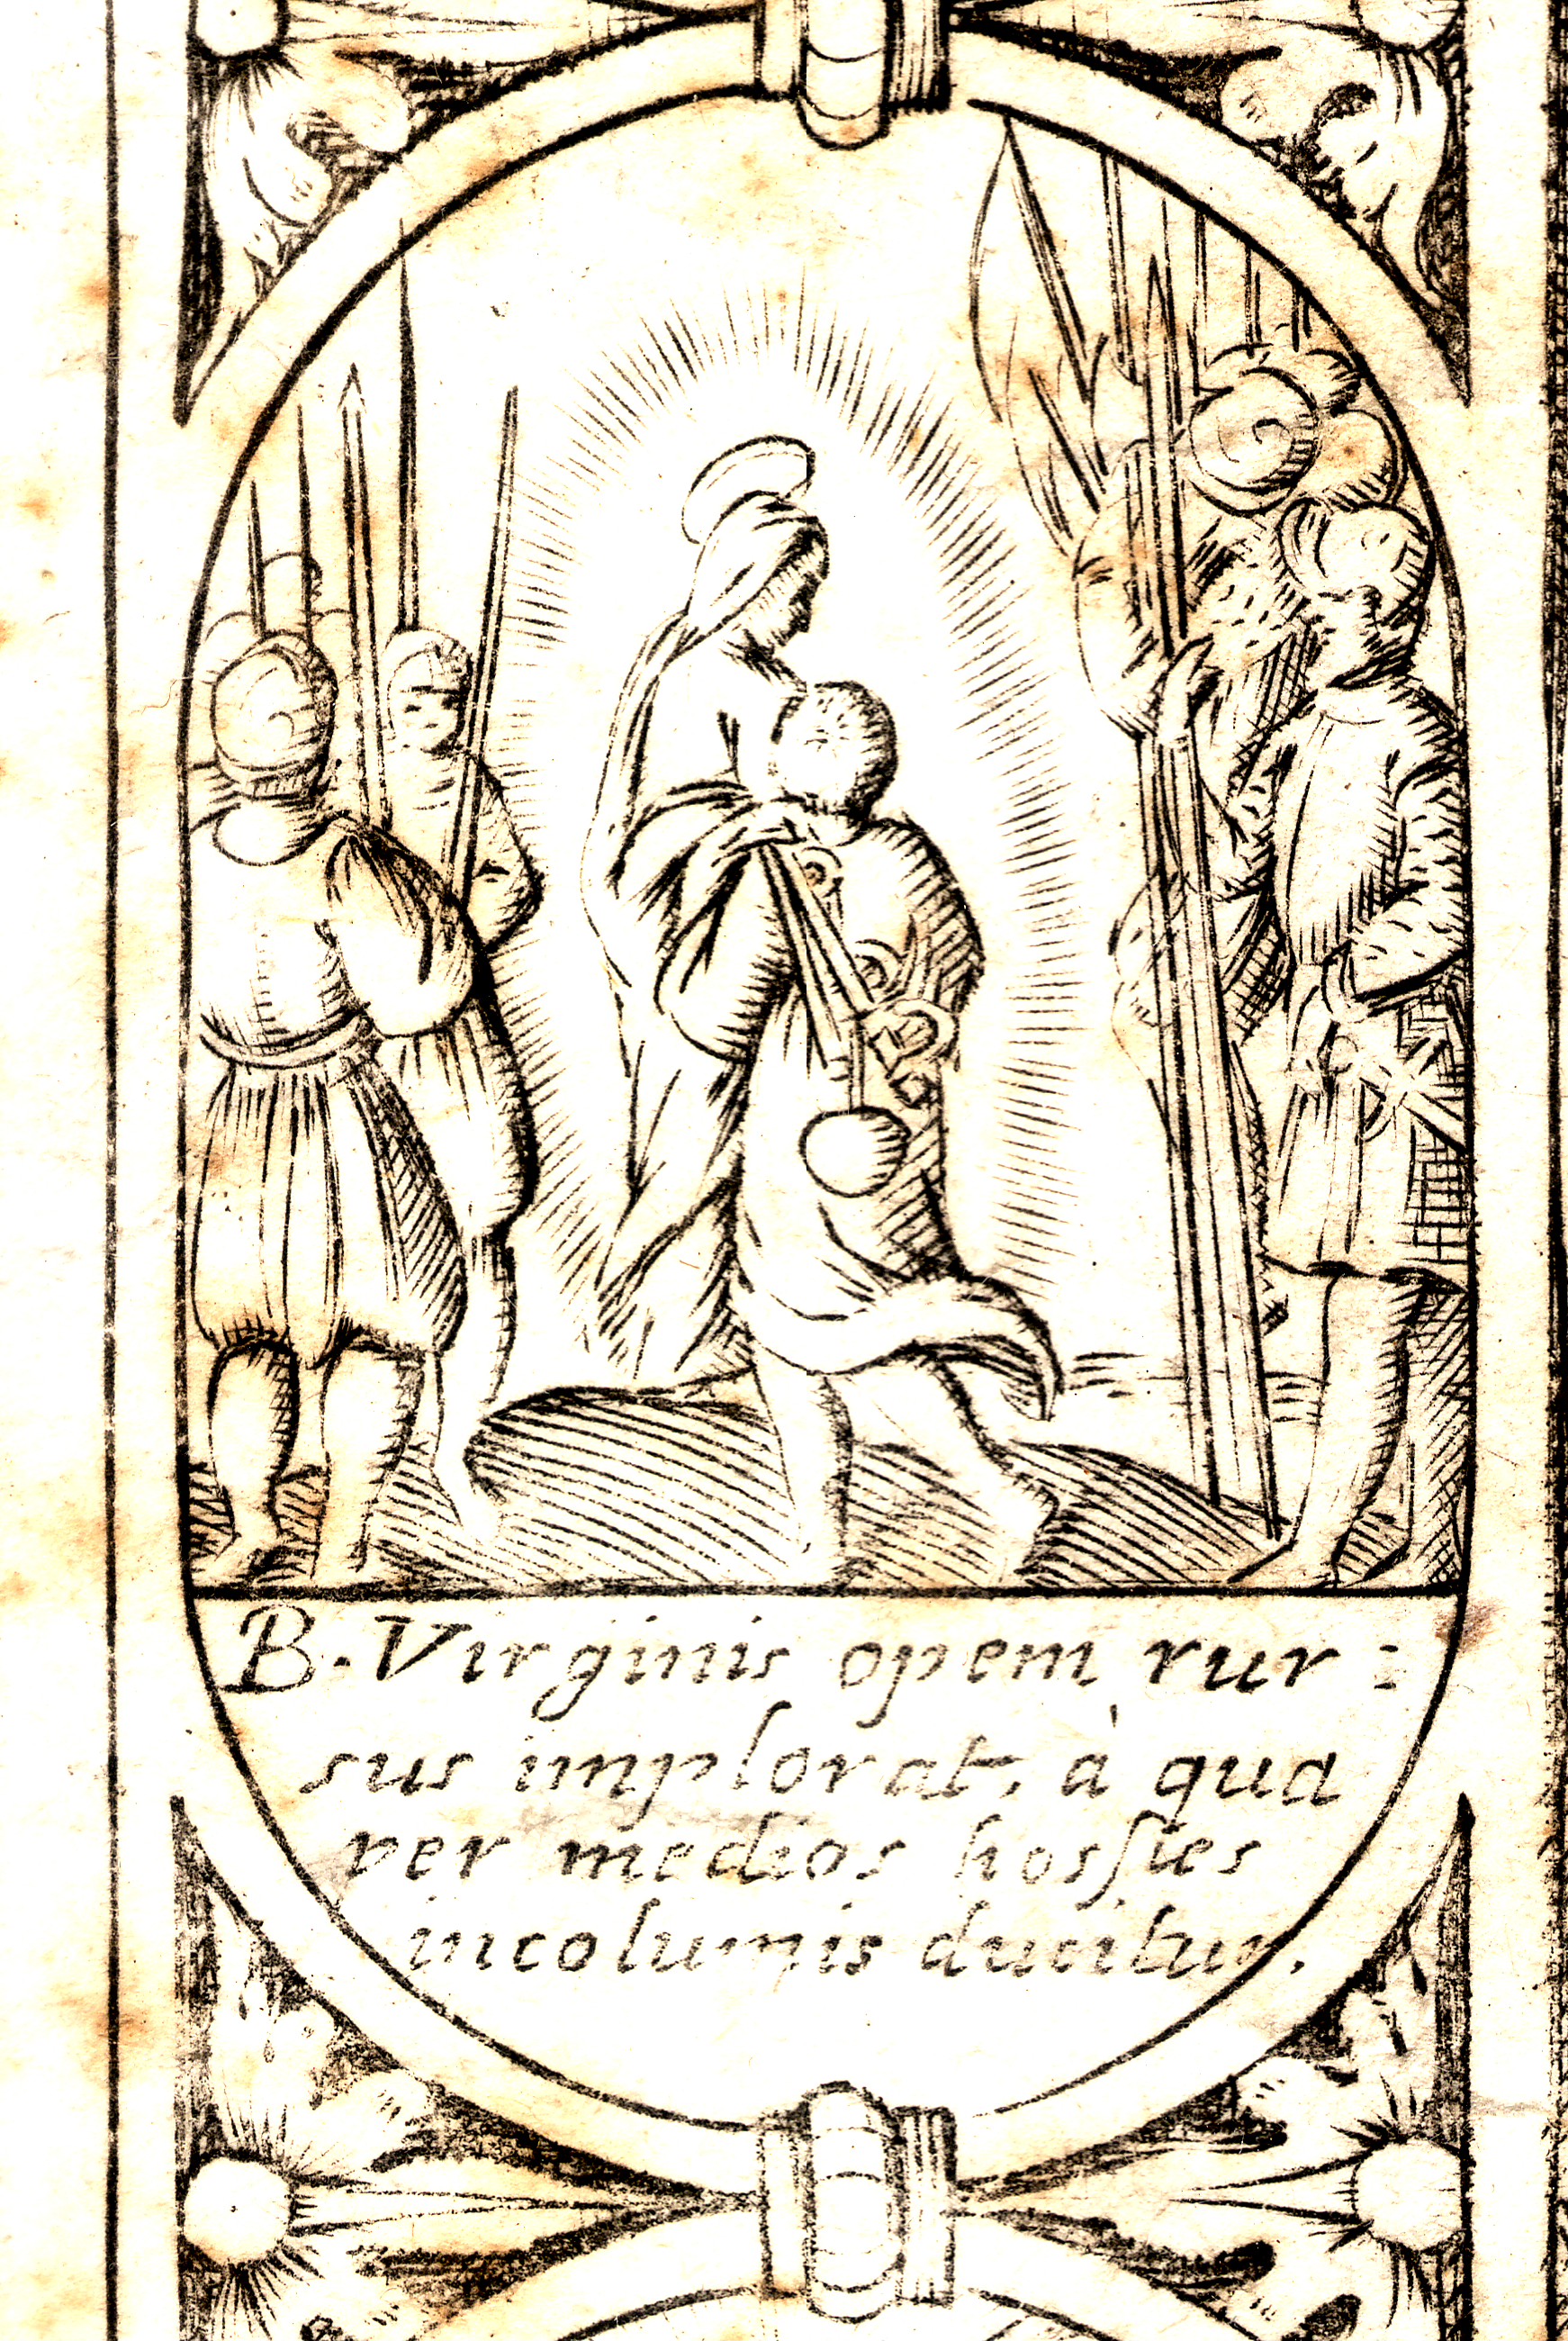 B. Virginis opem rur:
sus implorat, à qua
per medios hosſtes
incolumis ducitur.